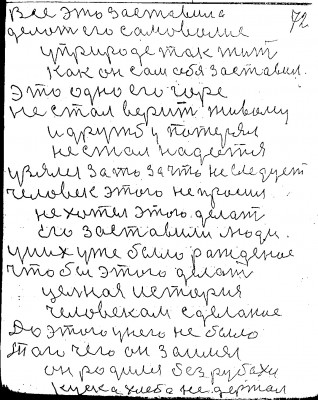 72
Все это заставила
делат его самоволие
у природе так жит
как он сам себя заставил.
Это одно его горе
не стал верит живому
и дружбу потерял
не стал надеятся
и взялся за то за что не следует
человек этого не просил
не хотел этого делат
его заставили люди.
у них уже было рождение
чтобы этого делат
целная история
человекам сделаное
До этого у него не было
того чего он занял
он родился без рубахи
куска хлеба не держал